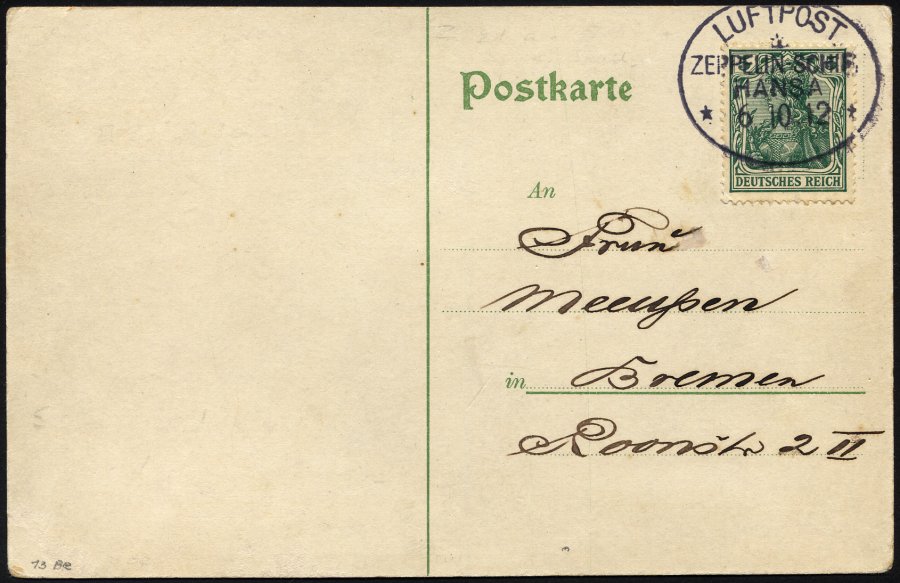 LUFTPOST
ZEPPELIN-SCHIFF
HANSA
6 10 12
DEUTSCHES REICH
Postkarte
An
Frau
Meeußen
in Bremen
Roonstr 2 II